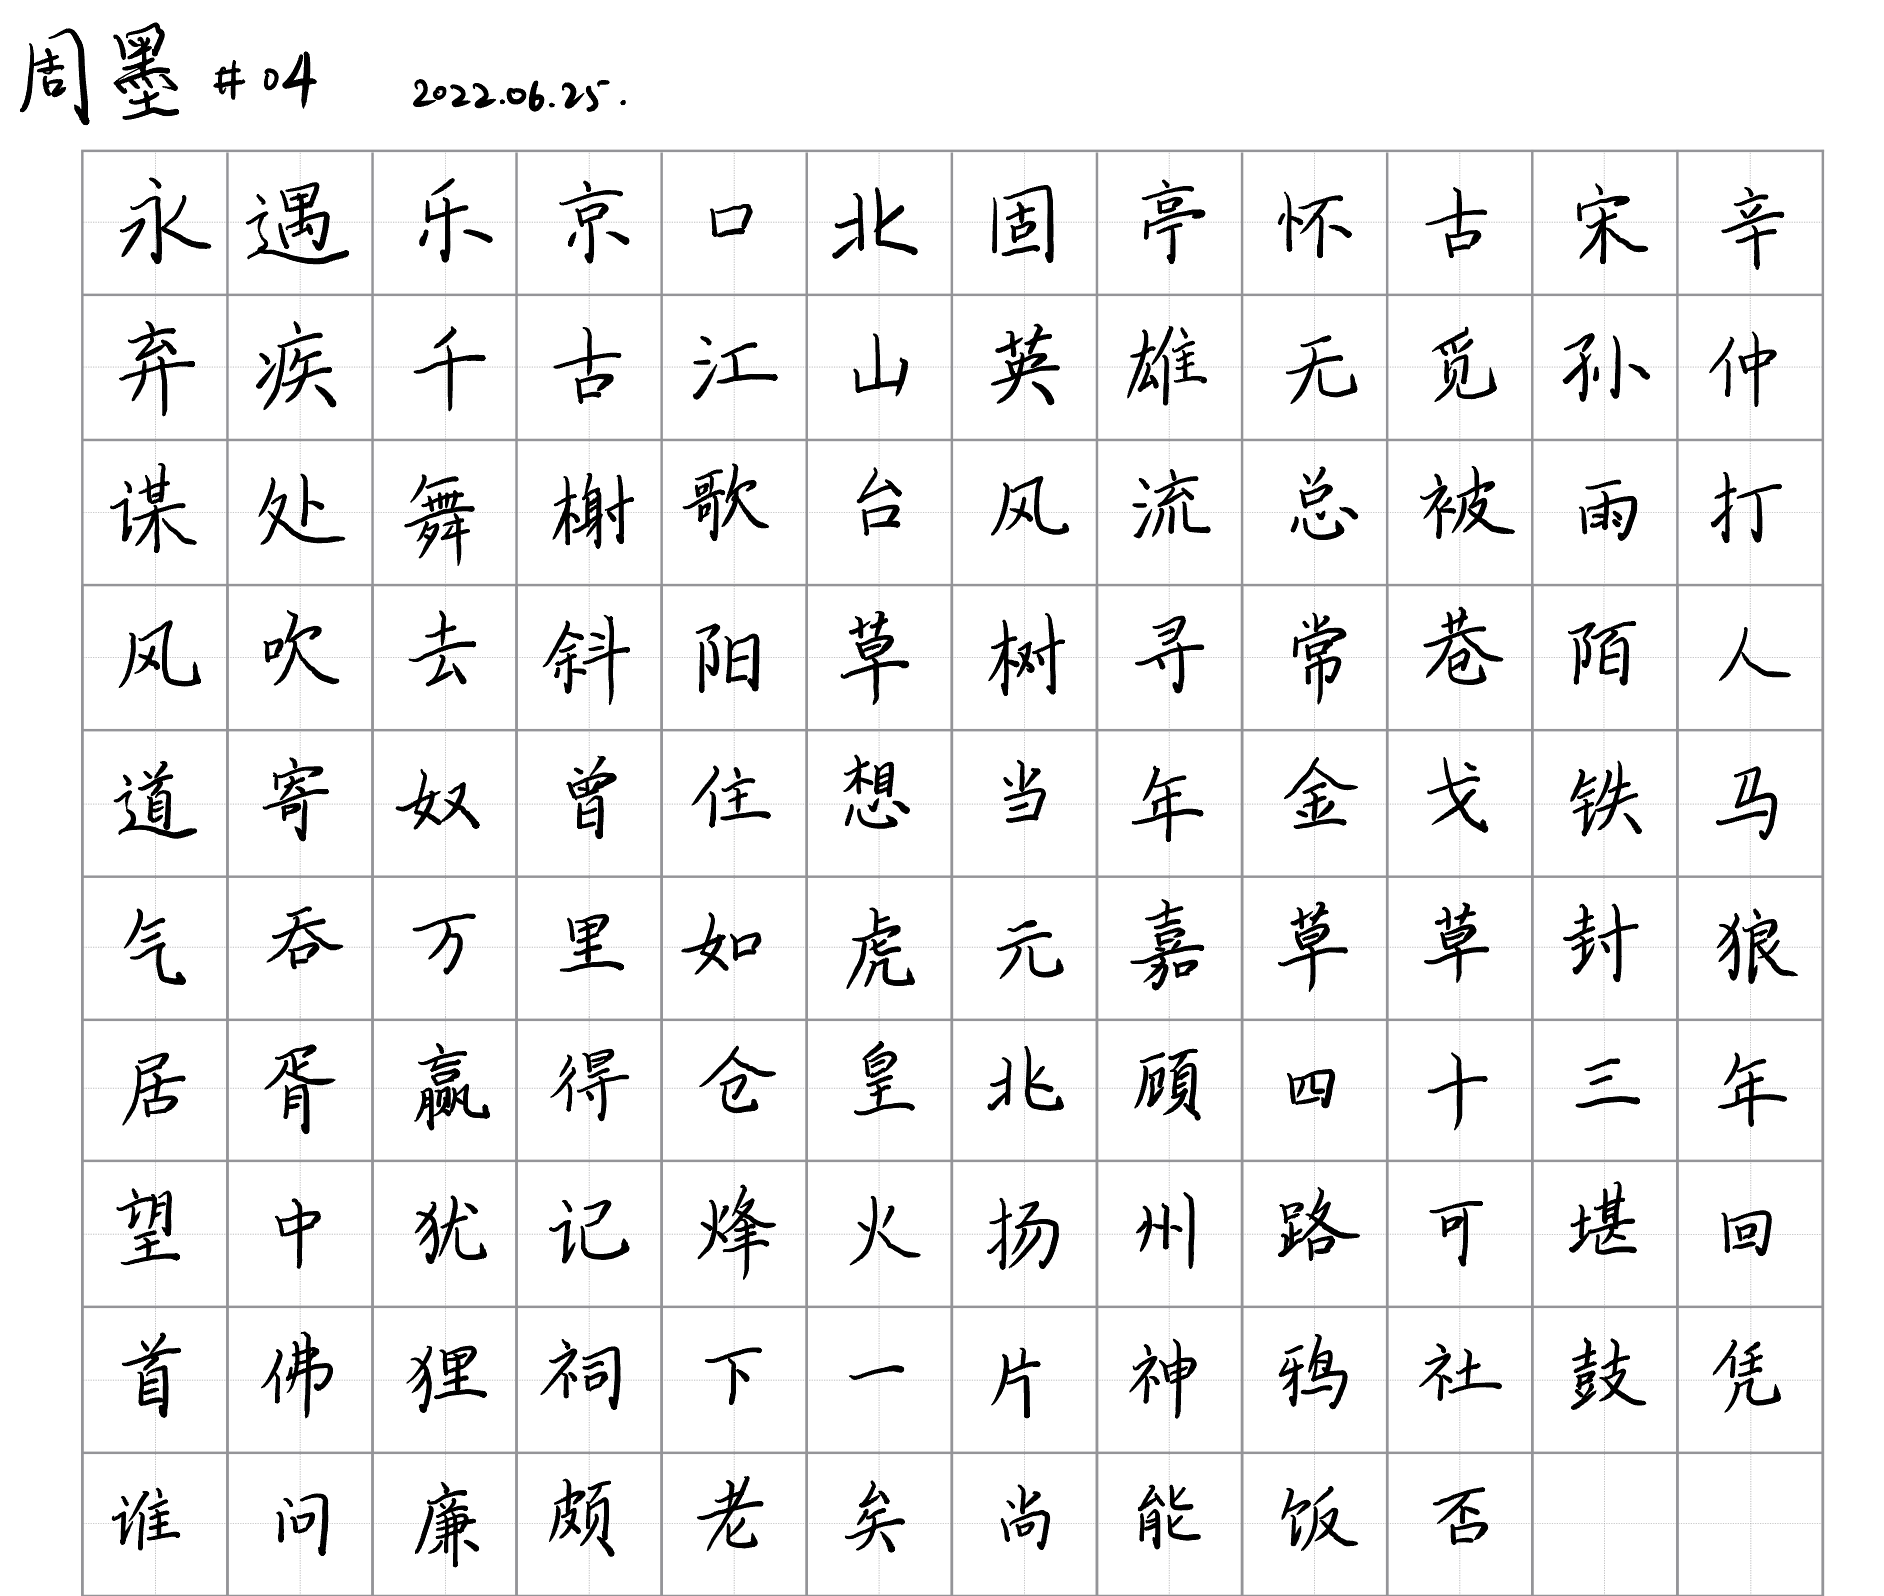 周墨 #04 2022.06.25.
永遇乐京口北固亭怀古宋辛
弃疾千古江山英雄无觅孙仲
谋处舞榭歌台风流总被雨打
风吹去斜阳草树寻常巷陌人
道寄奴曾住想当年金戈铁马
气吞万里如虎元嘉草草封狼
居胥赢得仓皇北顾四十三年
望中犹记烽火扬州路可堪回
首佛狸祠下一片神鸦社鼓凭
谁问廉颇老矣尚能饭否